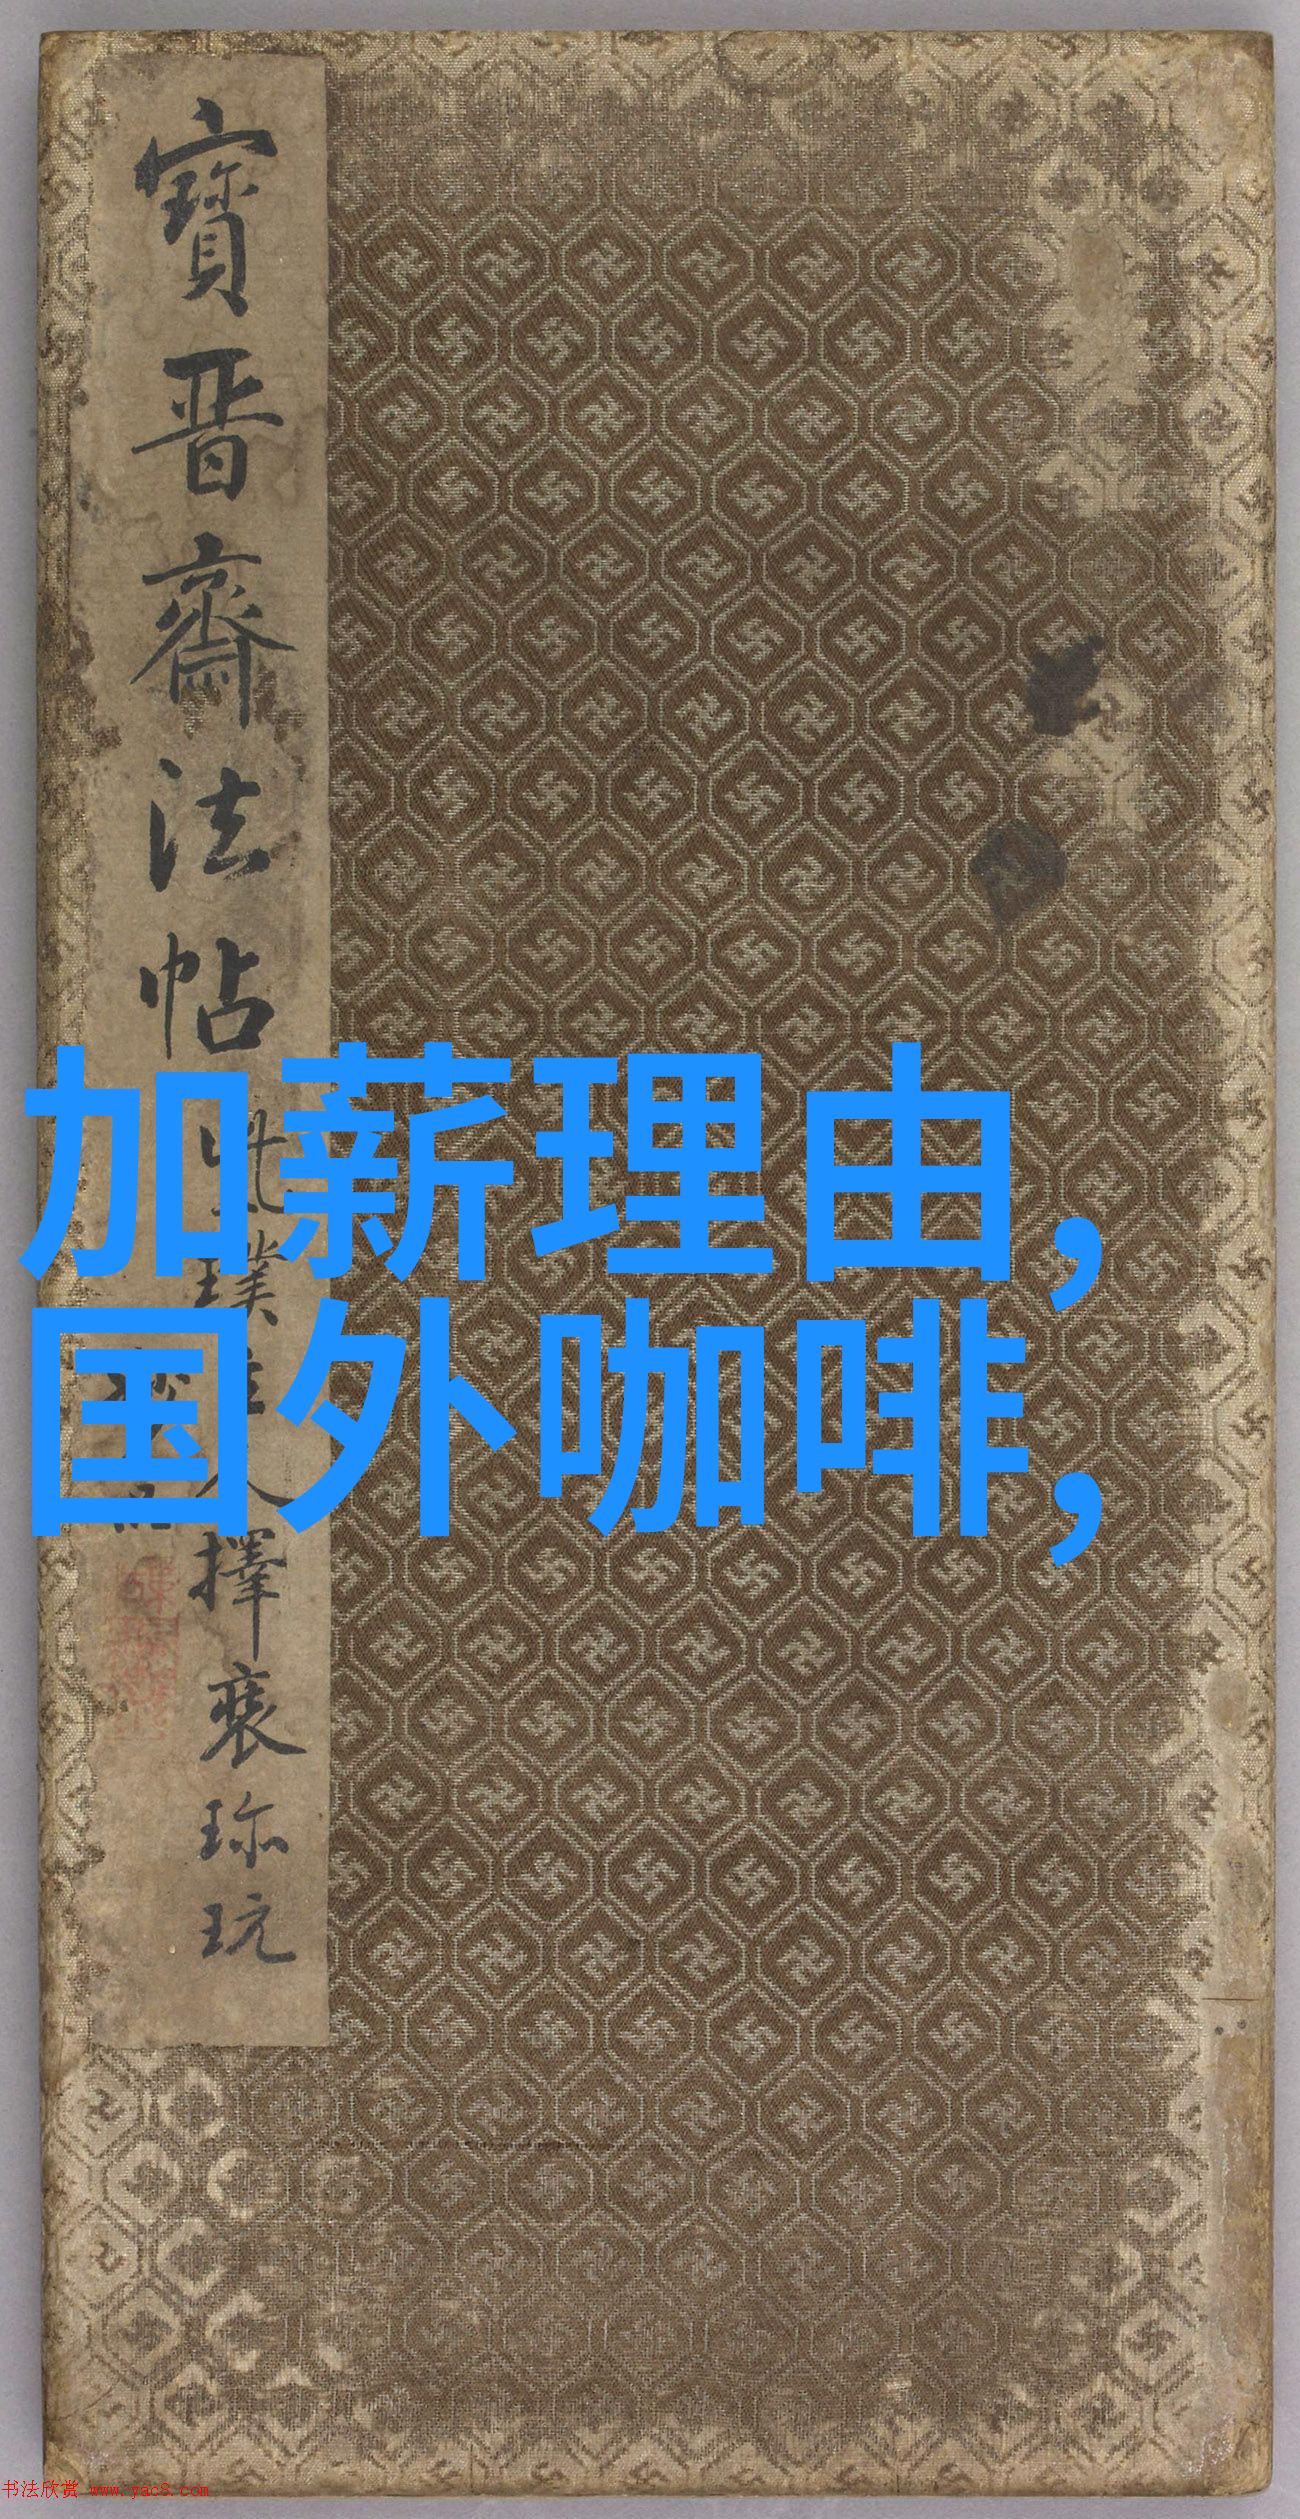 寳晋齋法帖
璞
擇裘珎玩
加薪理由,
国外咖啡,
书法欣赏 www.yac8.com